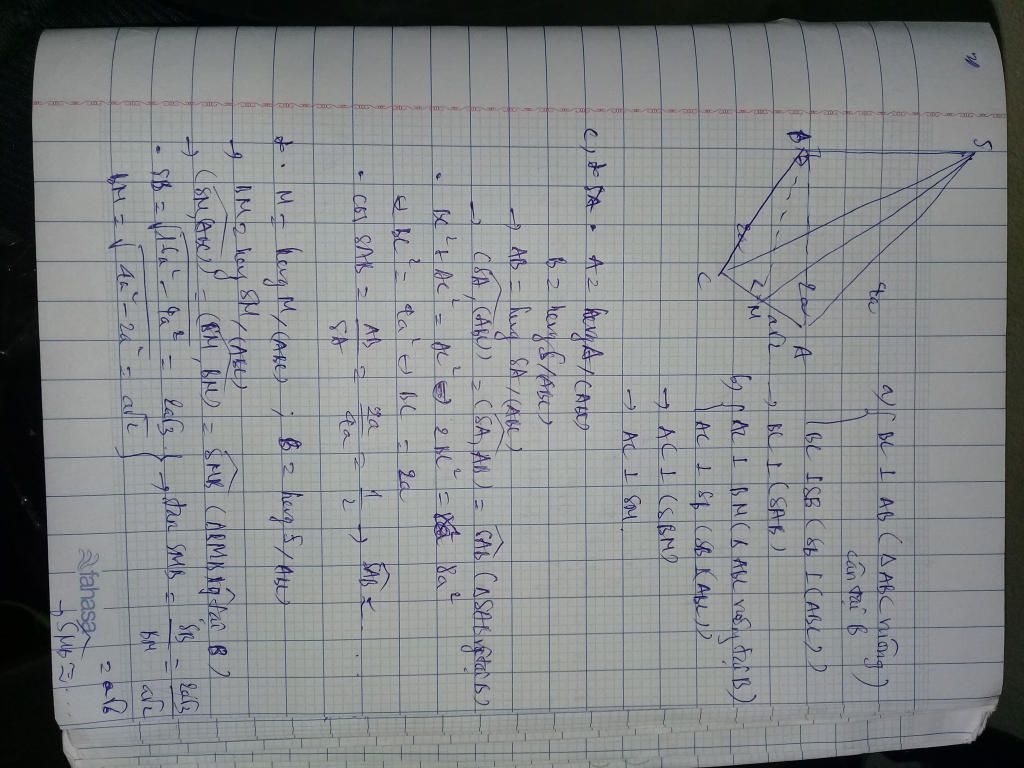 S
4a
B
A
2a
2a
a√2
M
C
a) { BC ⊥ AB (ΔABC vuông cân tại B
BC ⊥ SB (SB ⊥ (ABC))
→ BC ⊥ (SAB)
b) { AC ⊥ BM (ΔABC vuông tại B)
AC ⊥ SB (SB ⊥ (ABC))
→ AC ⊥ (SBM)
→ AC ⊥ SM.
c) * • A = hcg A/(ABC)
B = hcg S/(ABC)
→ AB = hcg SA/(ABC)
→ (SA, (ABC)) = (SA, AB) = SAB (ΔSAB vg tại B)
• BC² + AC² = AC² ⇔ 2BC² = 8a²
⇔ BC² = 4a² ⇔ BC = 2a
• cos SAB = AB/SA = 2a/4a = 1/2 → SAB = ....
* • M = hcg M/(ABC) ; B = hcg S/(ABC)
→ BM = hcg SM/(ABC)
→ (SM, (ABC)) = (SM, BM) = SMB (ΔBMS vg tại B)
• SB = √16a² - 4a² = 2a√3
BM = √4a² - 2a² = a√2 } → tan SMB = SB/BM = 2a√3/a√2
= a√6
→ SMB = ...
fahasa